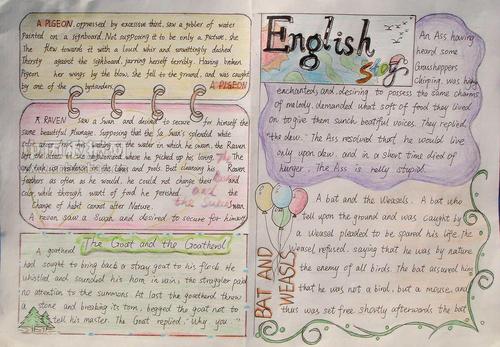 A PIGEON, oppressed by excessive thirst, saw a gobler of water
Painted on a signboard. Not supposing it to be only a picture, she
The flew towards it with a loud whir and unwittingly dashed
Thirsty against the signboard, jarring herself terribly. Having broken
Pigeon. her wings by the blow, she fell to the ground, and was caught
by one of the bystanders A PIGEON
A RAVEN saw a Swan and desired to secure for himself the
same beautiful plumage. Supposing that the Swan's splendid white
the water in which he swam, the Raven
left the altars in the neighborhood where he picked up his living,
and took up residence in the lakes and pools. But cleansing his
feathers as often as he would, he could not change their
color, while through want of food he perished. and the
Change of habit cannot alter Nature. the Swan
A raven saw a Swan and desired to secure for himself
The Goat and the Goatherd
A goatherd
had sought to bring back a stray goat to his flock. He
whistled and sounded his horn in vain; the straggler paid
no attention to the summons. At last the goatherd threw
a stone and breaking its torn, begged the goat not to
tell his master. The Goat replied, "Why you
English
song
An Ass having
heard some
Grasshoppers
chirping, was highly
enchanted, and, desiring to possess the same charms
of melody, demanded what soft of food they lived
on to give them such beautiful voices. They replied,
"the dew." The Ass resolved that he would live
only upon dew, and in a short time died of
hunger. The Ass is really stupid.
A bat and the Weasels. A bat who
fell upon the ground and was caught by
a Weasel pleaded to be spared his life. The
Weasel refused, saying that he was by nature
the enemy of all birds. The bat assured him
that he was not a bird, but a mouse, and
thus was set free. Shortly afterwards the bat
BAT AND
WEASLS